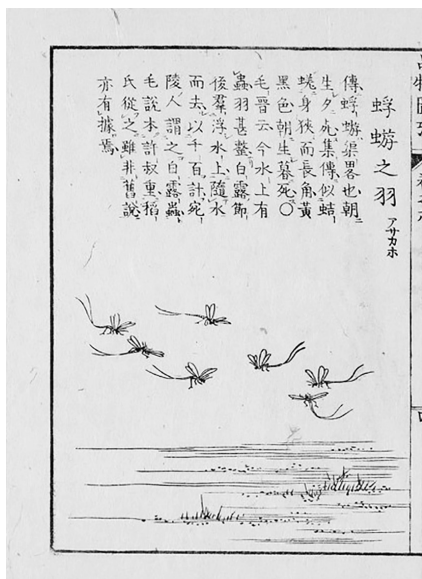 蜉蝣之羽 アサカホ
傳蜉蝣渠畧也朝
生夕死集傳似蛣
蜣身狹而長角黃
黑色朝生暮死〇
毛晉云今水上有
蟲羽甚整白露節
後羣浮水上隨水
而去以千百計宛
陵人謂之白露蟲
毛說本許叔重稻
氏從之雖非舊說
亦有據焉